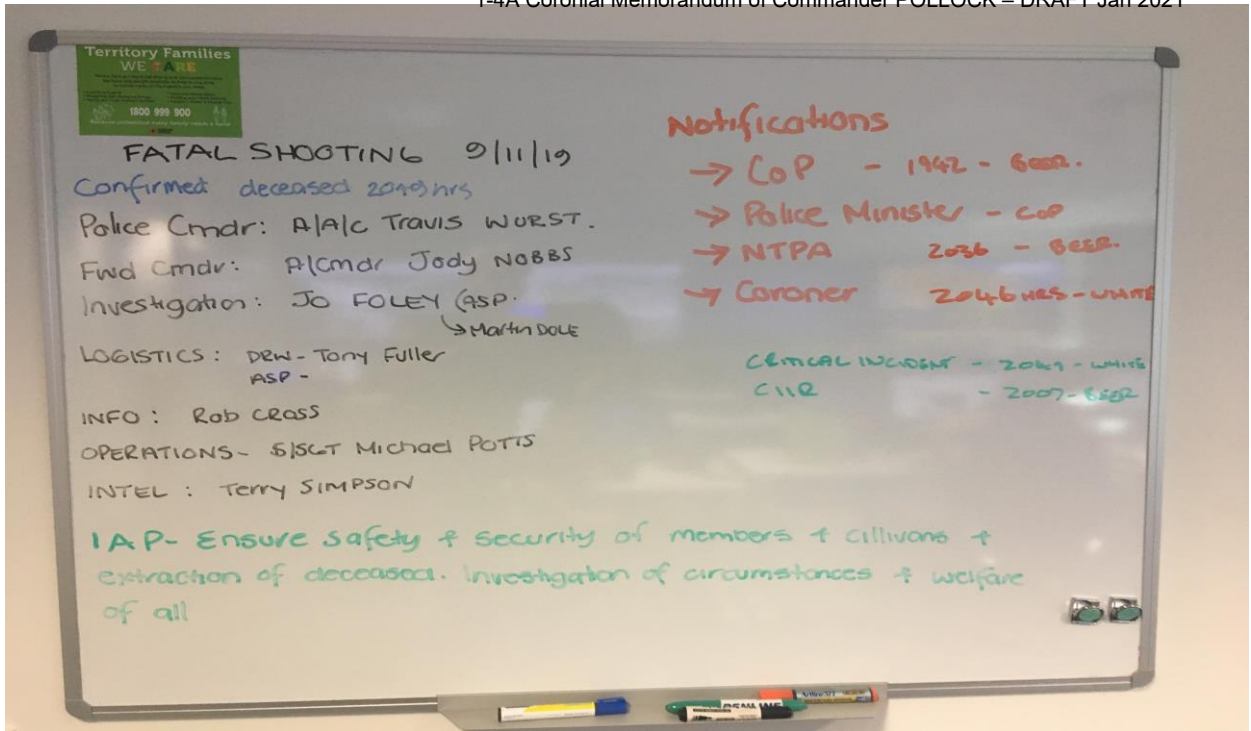 1-4A Coronial Memorandum of Commander POLLOCK – DRAFT Jan 2021
Territory Families
WE CARE
1800 999 900
FATAL SHOOTING 9/11/19
Confirmed deceased hrs
Police Cmdr: A/A/C Travis WURST.
Fwd Cmdr: A/Cmdr Jody NOBBS
Investigation: JO FOLEY (ASP.
↳ Martin DOLE
LOGISTICS: DRW - Tony Fuller
ASP -
INFO: Rob CROSS
OPERATIONS - S/SGT Michael POTTS
INTEL: Terry SIMPSON
IAP- Ensure safety + security of members + cillivans +
extraction of deceased. Investigation of circumstances + welfare
of all
Notifications
→ CoP - 1942 - BEER.
→ Police Minister - CoP
→ NTPA 2036 - BEER.
→ Coroner 2046 HRS - WHITE
CRITICAL INCIDENT - - WHITE
CIIR - 2007 - BEER